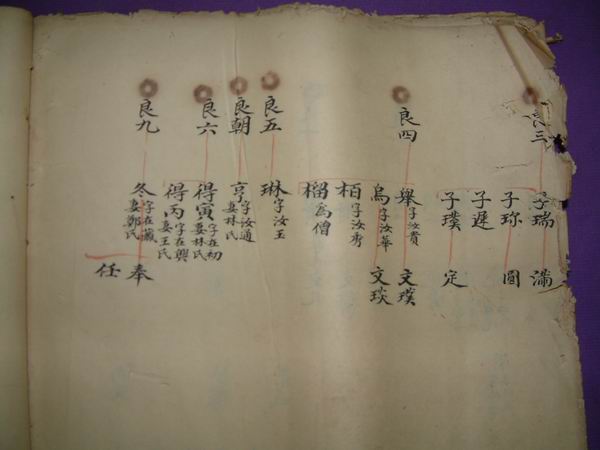 良三
子瑞
滿
子珎
圓
子遲
子璞
定
良四
舉字汝貴
文璞
烏字汝華
文琰
栢字汝秀
榴為僧
良五
琳字汝玉
良朝
亨字汝通
妻林氏
良六
得寅字在初
妻林氏
得丙字在興
妻王氏
良九
冬字在藏
妻鄭氏
奉
任